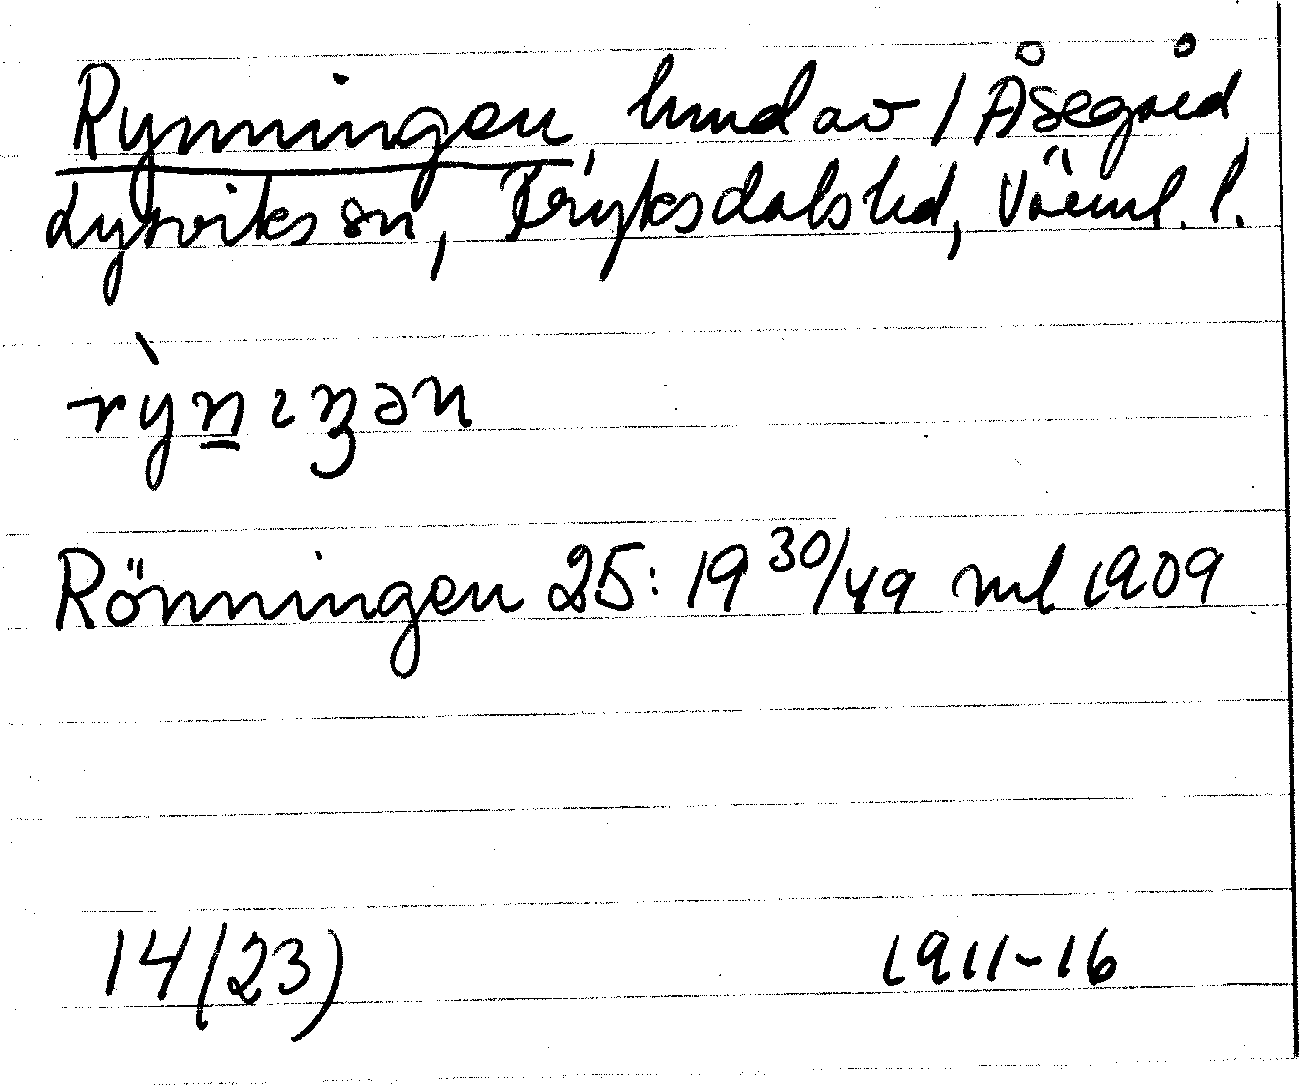 Rynningen, hmd av 1 Åsegård
Lysviks sn, Fryksdals hd, Värml. l.
rỳnɩŋən
Rönningen 25: 19 30/49 ml 1909
14(23)
1911-16